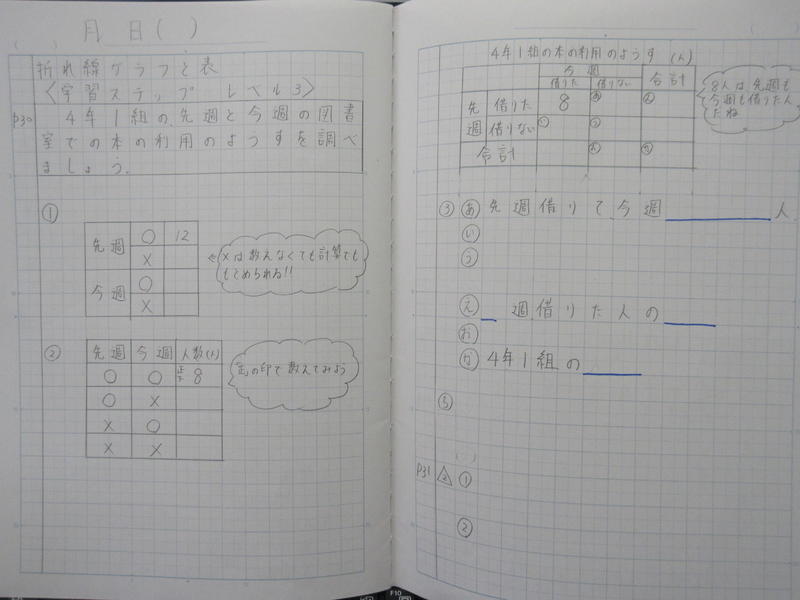 月 日( )
折れ線グラフと表
〈学習ステップ レベル3〉
P30 4年1組の、先週と今週の図書
室での本の利用のようすを調べ
ましょう。
①
先週 ○ 12
×
今週 ○
×
×は数えなくても計算でも
もとめられる!!
②
先週 今週 人数(人)
○ ○ 正下 8
○ ×
× ○
× ×
「正」の印で数えてみよう
4年1組の本の利用のようす (人)
今週 合計
借りた 借りない
先週 借りた 8 あ え
借りない い う
合計 お か
8人は先週も
今週も借りた人
だね
③ あ 先週借りて今週 人
い
う
え 週借りた人の
お
か 4年1組の
P31 2 ①
②